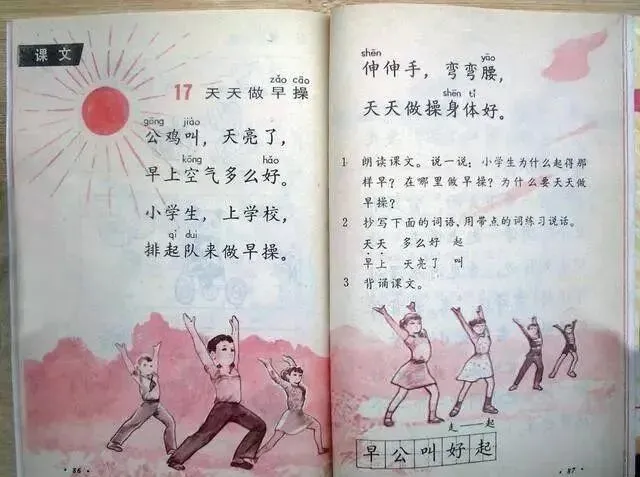 课文
zǎo cāo
17 天天做早操
gōng jiào
公鸡叫，天亮了，
kōng hǎo
早上空气多么好。
小学生，上学校，
qǐ duì
排起队来做早操。
·86·
shēn yāo
伸伸手，弯弯腰，
shēn tǐ
天天做操身体好。
1 朗读课文。说一说：小学生为什么起得那
样早？在哪里做早操？为什么要天天做
早操？
2 抄写下面的词语，用带点的词练习说话。
天天 多么好 起
早上 天亮了 叫
3 背诵课文。
走——起
早公叫好起
·87·